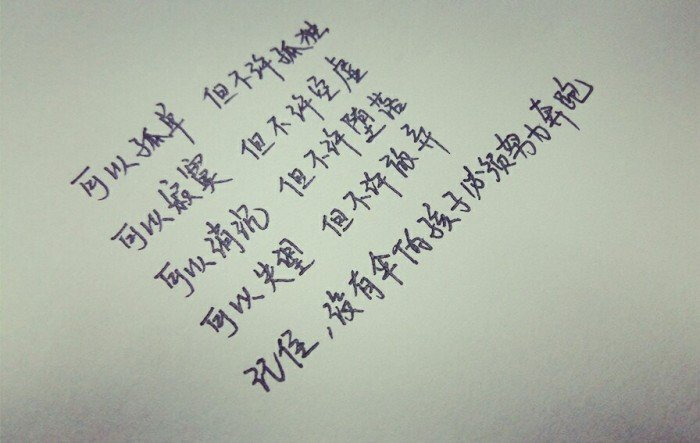 可以孤单 但不许孤独
可以寂寞 但不许空虚
可以消沉 但不许堕落
可以失望 但不许放弃
记住，没有伞的孩子必须努力奔跑